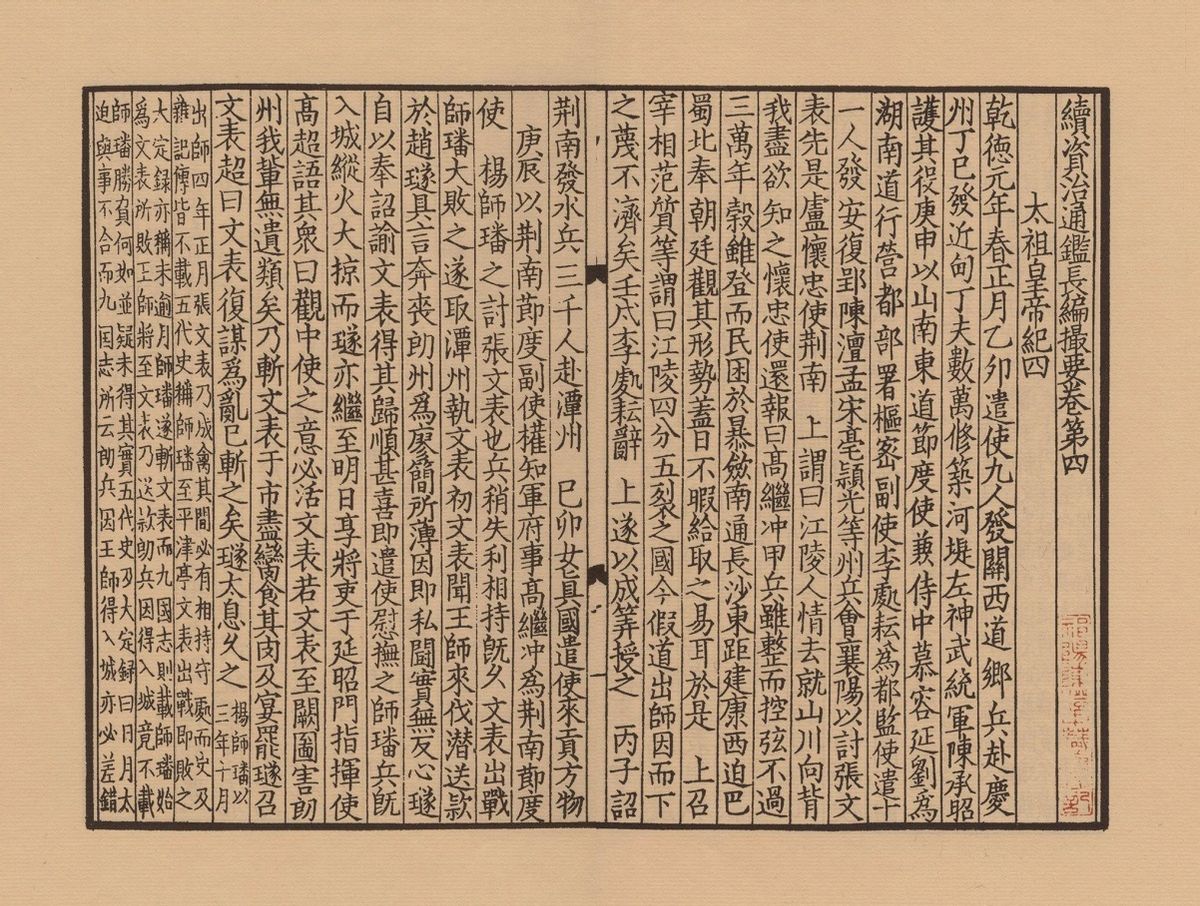 續資治通鑑長編撮要卷第四
太祖皇帝紀四
乾德元年春正月乙卯遣使九人發關西道鄉兵赴慶
州丁巳發近甸丁夫數萬修築河堤左神武統軍陳承昭
護其役庚申以山南東道節度使兼侍中慕容延釗爲
湖南道行營都部署樞密副使李處耘爲都監使遣十
一人發安復郢陳澶孟宋亳潁光等州兵會襄陽以討張文
表先是盧懷忠使荆南 上謂曰江陵人情去就山川向背
我盡欲知之懷忠使還報曰高繼冲甲兵雖整而控弦不過
三萬年穀雖登而民困於暴斂南通長沙東距建康西迫巴
蜀北奉朝廷觀其形勢蓋日不暇給取之易耳於是 上召
宰相范質等謂曰江陵四分五裂之國今假道出師因而下
之蔑不濟矣壬戌李處耘辭 上遂以成筭授之 丙子詔
荆南發水兵三千人赴潭州 己卯女真國遣使來貢方物
庚辰以荆南節度副使權知軍府事高繼冲爲荆南節度
使 楊師璠之討張文表也兵稍失利相持既久文表出戰
師璠大敗之遂取潭州執文表初文表聞王師來伐潛送款
於趙璲具言奔喪朗州爲廖簡所薄因即私鬪實無反心璲
自以奉詔諭文表得其歸順甚喜即遣使慰撫之師璠兵旣
入城縱火大掠而璲亦繼至明日享將吏于延昭門指揮使
高超語其衆曰觀中使之意必活文表若文表至闕圖害朗
州我輩無遺類矣乃斬文表于市盡臠食其肉及宴罷璲召
文表超曰文表復謀爲亂已斬之矣璲太息久之 楊師璠以三年十月
出師四年正月張文表乃成禽其間必有相持守處而史及
雜記傳皆不載五代史稱師璠至平津亭文表出戰即敗之
大定錄亦稱未逾月師璠遂斬文表而九國志則載師璠始
爲文表所敗王師將至文表乃送款朗兵因得入城竟不載
師璠勝負何如並疑未得其實五代史乃大定録曰日月太
迫與事不合而九国志所云朗兵因王師得入城亦必差錯